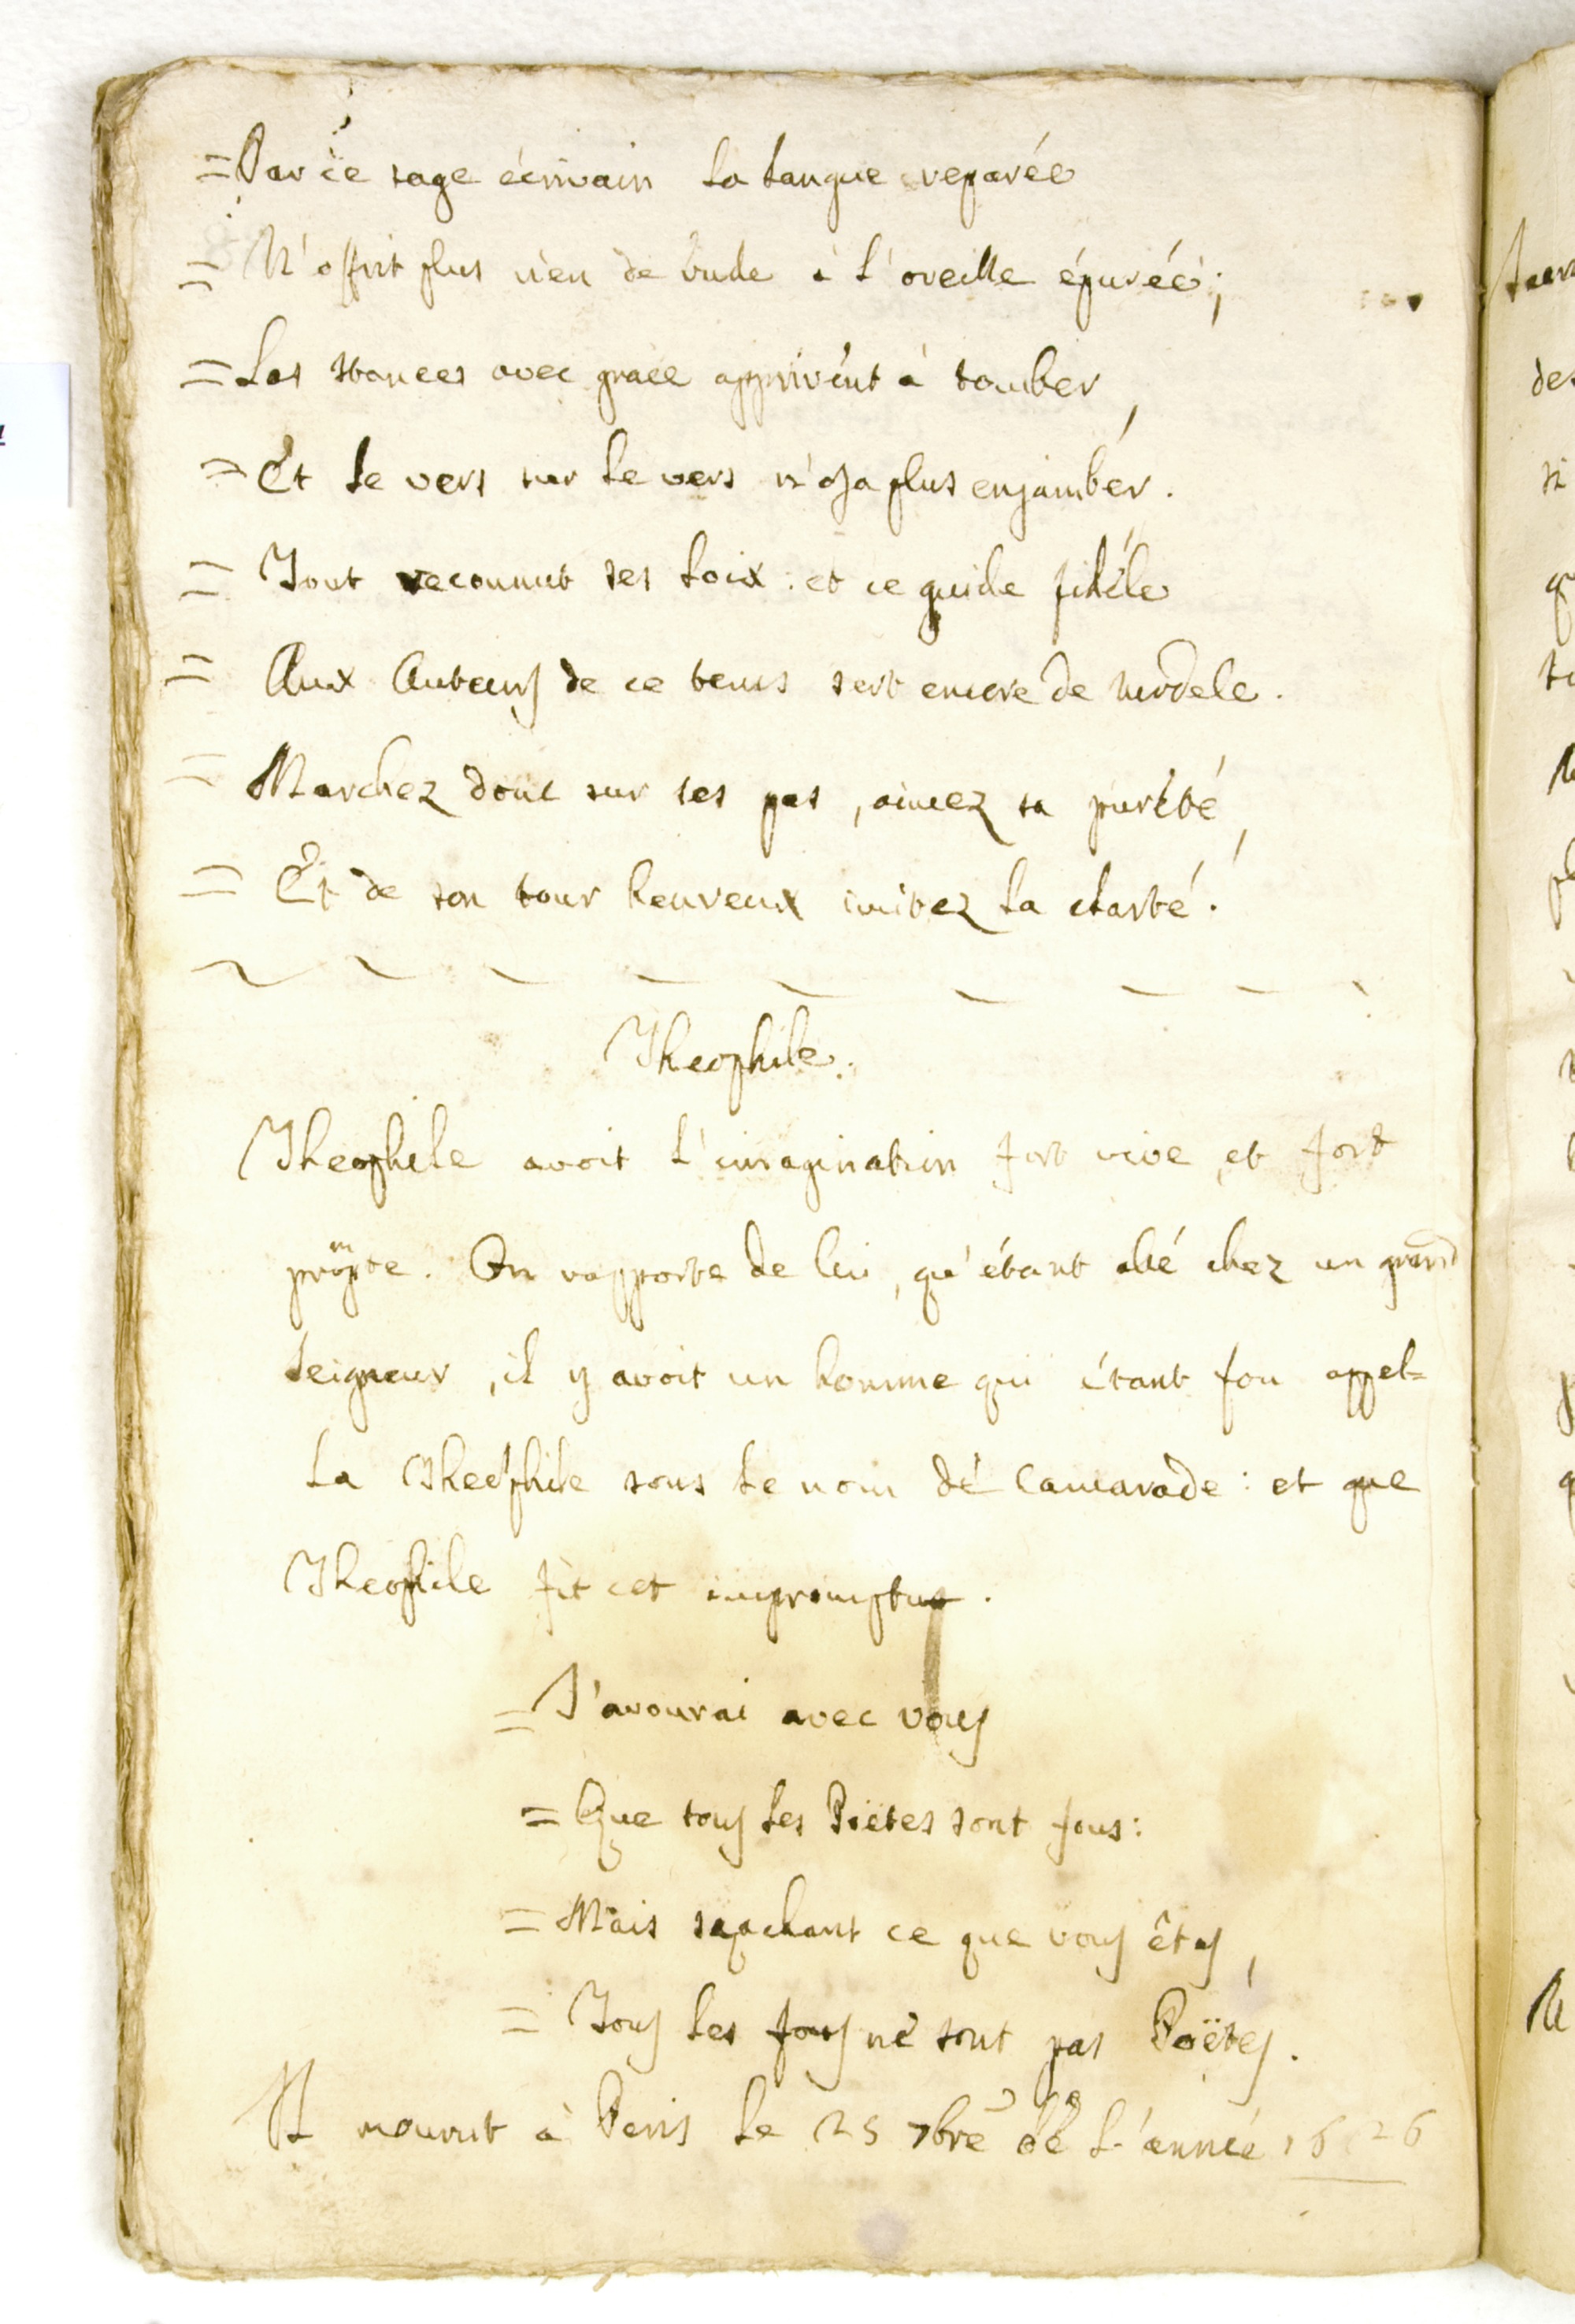 = Par ce sage écrivain la langue reparée
= N'offrit plus rien de rude à l'oreille épurée;
= Les stances avec grace apprirent à tomber,
= Et le vers sur le vers n'osa plus enjamber.
= Tout reconnut ses loix: et ce guide fidéle
= Aux Auteurs de ce tems sert encore de modele.
= Marchez donc sur ses pas, aimez sa pureté,
= Et de son tour heureux imitez la clarté.
Theophile.
Theophile avoit l'imagination fort vive, et fort
prompte. On rapporte de lui, qu'étant allé chez un grand
seigneur, il y avoit un homme qui étant fou appel=
la Theophile sous le nom de Camarade: et que
Theophile fit cet impromptu.
= J'avourai avec vous
= Que tous les Poëtes sont fous:
= Mais sçachant ce que vous êtes,
= Tous les fous ne sont pas Poëtes.
Il mourut à Paris le 25 7bre de l'année 1626